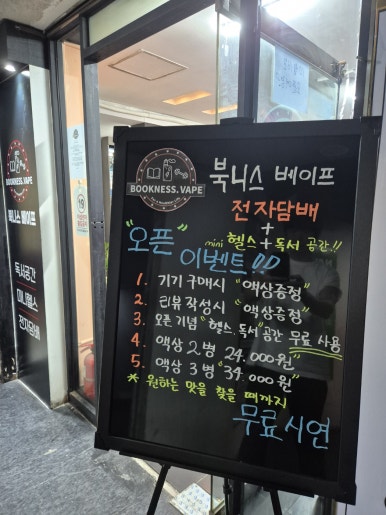 BOOKNESS.VAPE
북니스 베이프
독서공간
미니헬스
전자담배
BOOKNESS.VAPE
북니스 베이프
전자담배
+
mini 헬스 + 독서 공간!!
"오픈" 이벤트!!
1. 기기 구매시 "액상증정"
2. 리뷰 작성시 "액상증정"
3. 오픈 기념 "헬스, 독서" 공간 무료 사용
4. 액상 2병 24.000원"
5. 액상 3병 "34.000원"
* 원하는 맛을 찾을 때까지
무료 시연